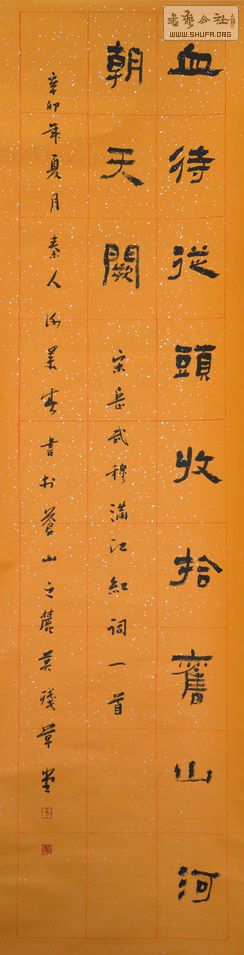 血待從頭收拾舊山河
朝天闕
宋岳武穆滿江紅詞一首
辛卯年夏月素人沁芙書於蒼山之麓莫殘草堂
書藝公社
WWW.SHUFA.ORG